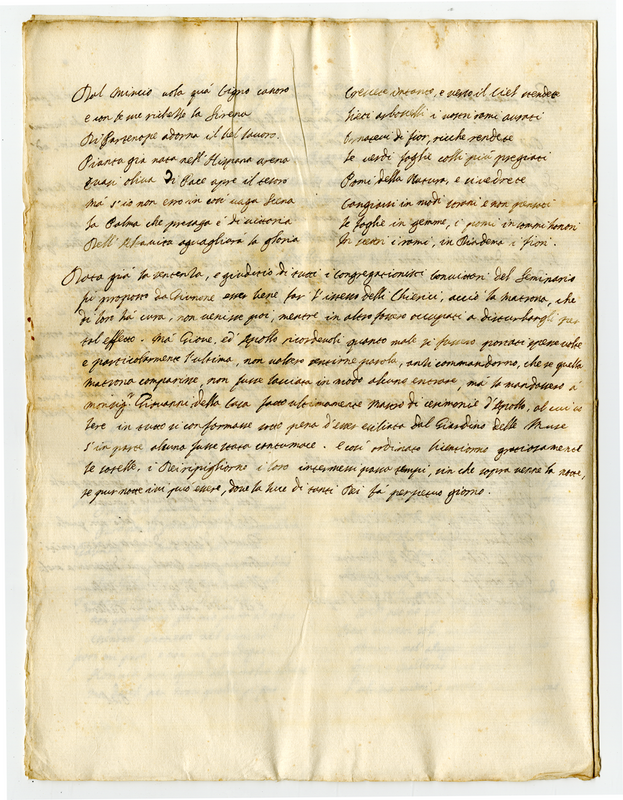 Dal Mincio vola quà Cigno canoro
e con le sue
la Sirena
Di Partenope adorna il bel lavoro.
Pianta già nata nell'Hispana arena
Quasi oliva di Pace apre il tesoro
Ma s'io non erro in così vaga scena
la Palma che presaga è di vittoria
Dell' agguagliarà la gloria
Crescete intanto, e verso il Ciel stendete
lieti arboscelli i vostri rami aurati
Ornatevi di fior, ricche rendete
le verdi foglie colli più pregiati
Pomi della Natura, e vi vedrete
Cangiarsi in modi strani e non
le foglie in gemme, i pomi in honori
In i rami, in Diadema i fiori.
Data già la sentenza, e giuditio di tutti i congregationisti convittori del Seminario
fù proposto da Giunone esser bene, far l'istesso delli Chierici, acciò la matrona, che
di loro hà cura, non venisse poi, mentre in altro fossero occupati a disturbargli
tal effetto. Mà Giove, ed' Apollo ricordevoli quanto male si fossero portati spesse volte
e particolarmente l'ultima, non volsero sentirne parola, anzi commandorno, che se quella
matrona comparisse, non fusse lasciata in modo alcuno entrare, mà la mandassero à
monsig.r Giovanni della Casa fatto ultimamente Mastro di cerimonie d'Apollo, al cui vo
lere in tutto si conformasse sotto pena d'esser esiliata dal Giardino delle Muse
s'in parte alcuna fusse stata contumace. E così ordinato licentiorno gratiosament
le sorelle, i Dei ripigliorno i loro intermessi passa tempi, sin che sopra venne la notte,
se pur notte ivi può essere, dove la luce di tanti Dei fà perpetuo giorno.